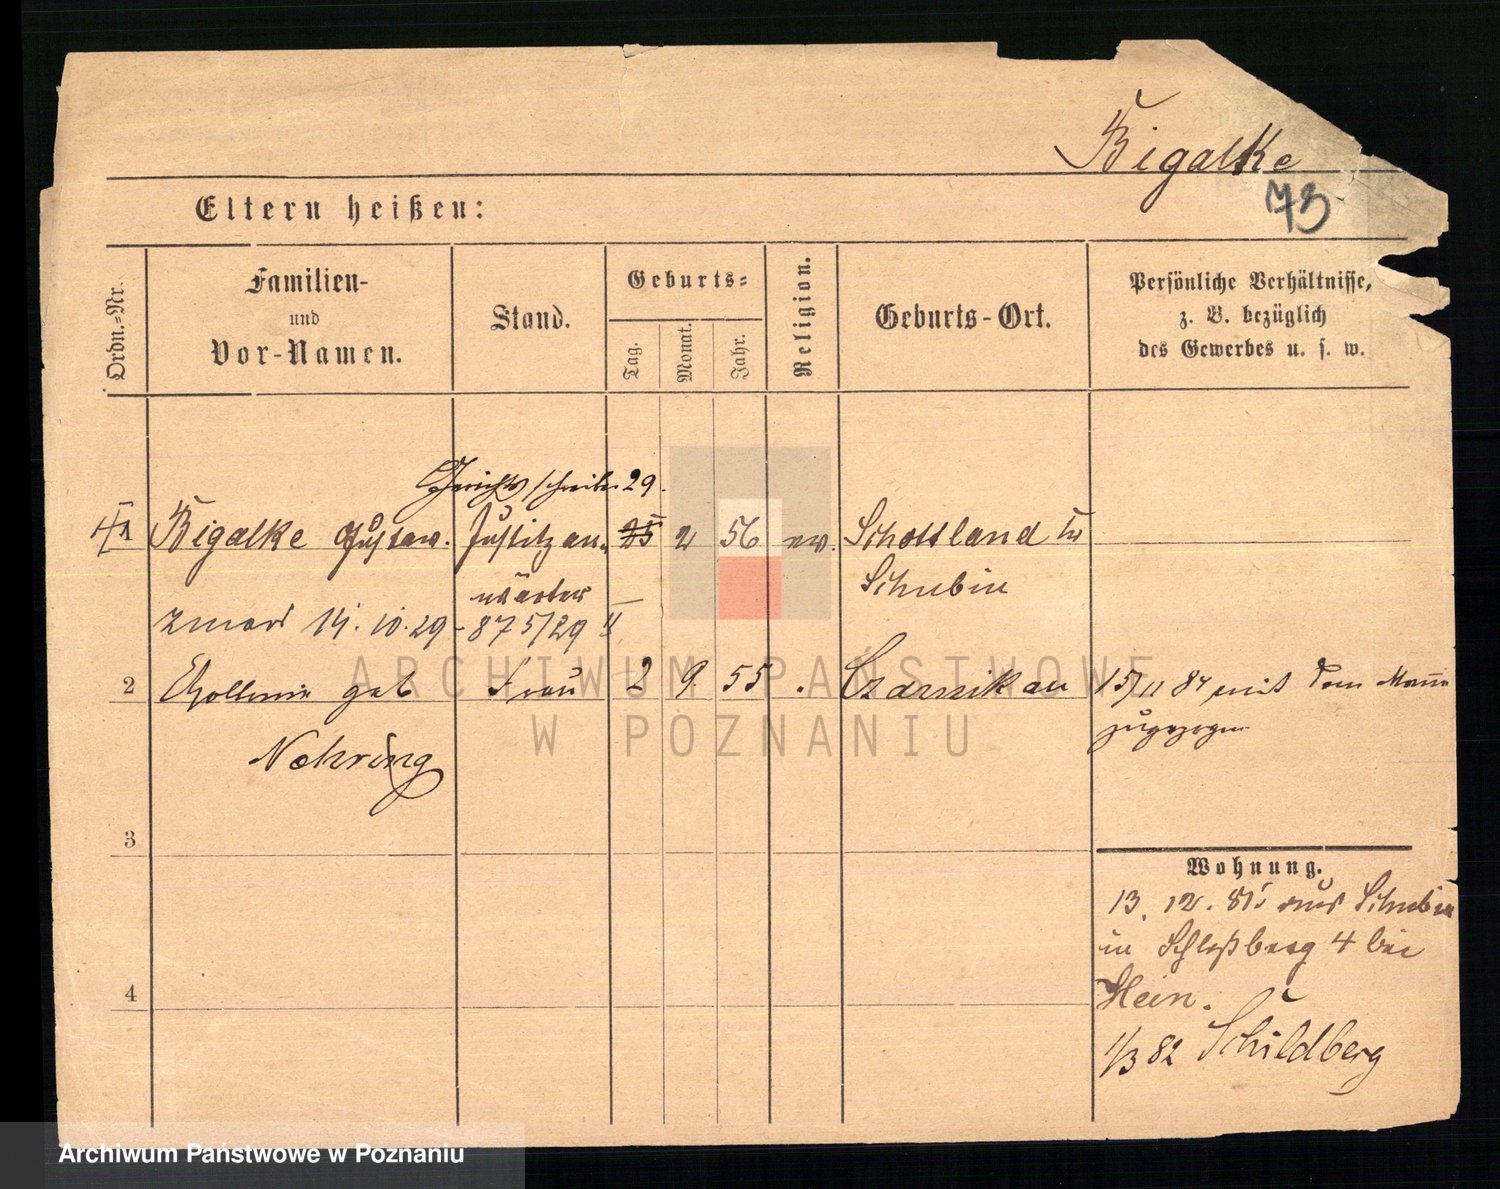 Bigalke
73
Eltern heißen:
Ordn.-Nr.
Familien-
und
Vor-Namen.
Stand.
Geburts-
Tag.
Monat.
Jahr.
Religion.
Geburts-Ort.
Persönliche Verhältnisse,
z. B. bezüglich
des Gewerbes u. s. w.
Gerichtsschreiber 29.
1 Bigalke Gustav. Justizan- 25 2 56 ev. Schottland Kr
wärter Schubin
zmarł 14.10.29 - 875/29 II
2 geb Frau 2 9 55 Czarnikau 15/11 84 mit dem Mann
Nehring zugezogen
3
4
Wohnung.
13. 12. 81 aus Schubin
in Schloßberg 4 bei
Hein.
1/3 82 Schildberg
ARCHIWUM PAŃSTWOWE
W POZNANIU
Archiwum Państwowe w Poznaniu